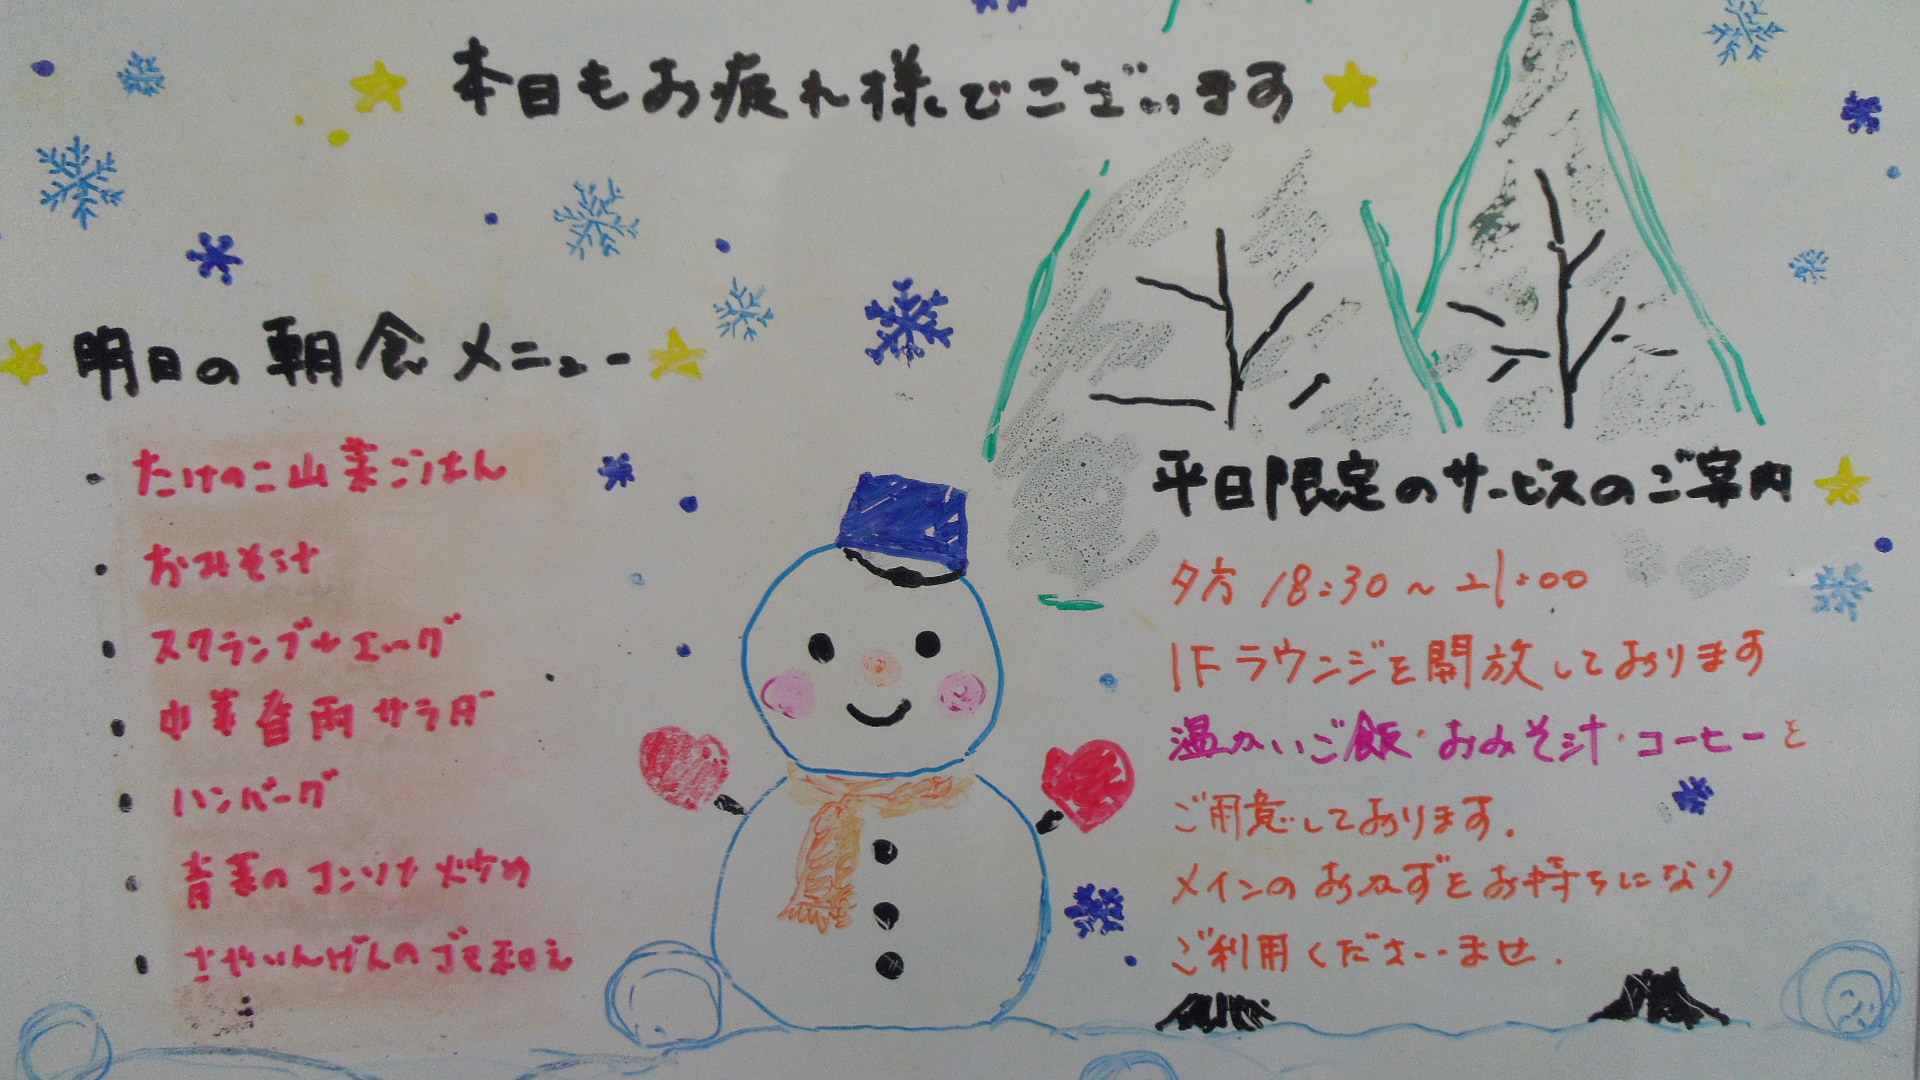 本日もお疲れ様でございます
明日の朝食メニュー
・たけのこ山菜ごはん
・おみそ汁
・スクランブルエッグ
・中華春雨サラダ
・ハンバーグ
・青菜のコンソメ炒め
・さやいんげんのゴマ和え
平日限定のサービスのご案内
夕方 18:30~21:00
1Fラウンジを開放しております
温かいご飯・おみそ汁・コーヒーを
ご用意しております.
メインのおかずをお持ちになり
ご利用くださいませ.